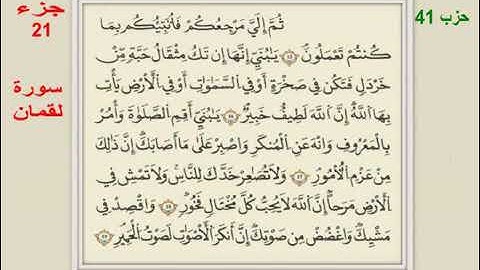 جزء
21
سورة
لقمان
حزب 41
ثُمَّ إِلَيَّ مَرْجِعُكُمْ فَأُنَبِّئُكُم بِمَا
كُنتُمْ تَعْمَلُونَ ١٥ يَٰبُنَيَّ إِنَّهَا إِن تَكُ مِثْقَالَ حَبَّةٍ مِّنْ
خَرْدَلٍ فَتَكُن فِي صَخْرَةٍ أَوْ فِي السَّمَٰوَٰتِ أَوْ فِي الْأَرْضِ يَأْتِ
بِهَا اللَّهُ إِنَّ اللَّهَ لَطِيفٌ خَبِيرٌ ١٦ يَٰبُنَيَّ أَقِمِ الصَّلَوٰةَ وَأْمُرْ
بِالْمَعْرُوفِ وَانْهَ عَنِ الْمُنكَرِ وَاصْبِرْ عَلَىٰ مَا أَصَابَكَ إِنَّ ذَٰلِكَ
مِنْ عَزْمِ الْأُمُورِ ١٧ وَلَا تُصَٰعِرْ خَدَّكَ لِلنَّاسِ وَلَا تَمْشِ فِي
الْأَرْضِ مَرَحًا إِنَّ اللَّهَ لَا يُحِبُّ كُلَّ مُخْتَالٍ فَخُورٍ ١٨ وَاقْصِدْ فِي
مَشْيِكَ وَاغْضُضْ مِن صَوْتِكَ إِنَّ أَنكَرَ الْأَصْوَٰتِ لَصَوْتُ الْحَمِيرِ ١٩